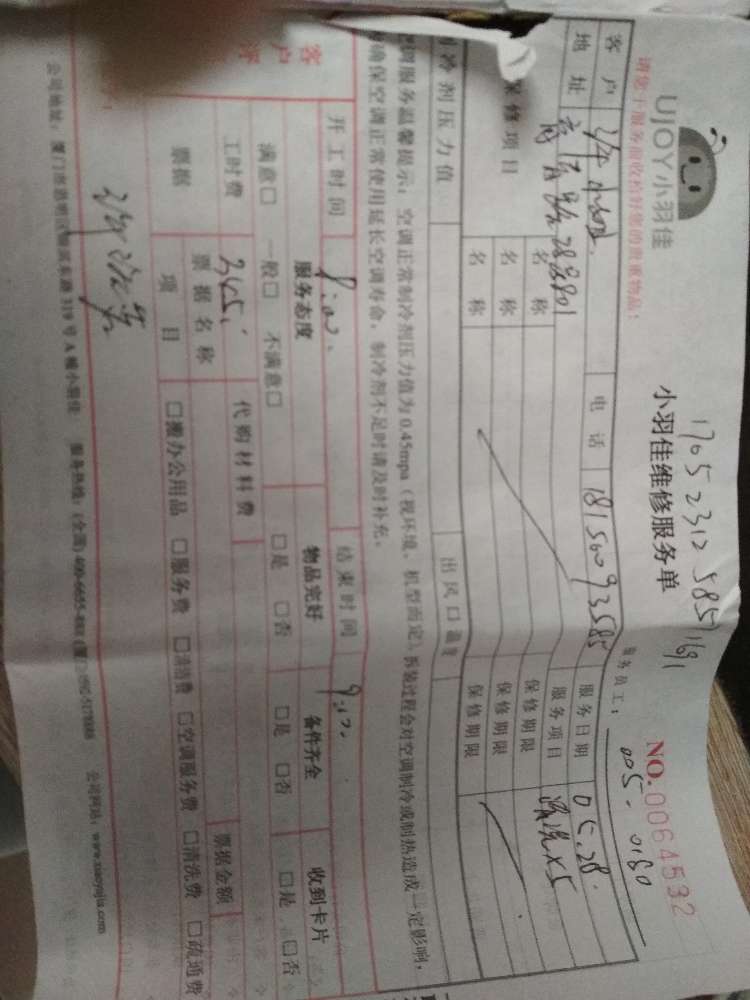 UJOY小羽佳
小羽佳维修服务单
NO.0064532
请您于服务前收拾好您的贵重物品!
服务员工: 005. 0180
客户 电话 18150093585 服务日期 05.28.
地址 28号801 服务项目 清洗x5
保修项目 名称 保修期限
名称 保修期限
名称 保修期限
制冷剂压力值 出风口温度
空调服务温馨提示:空调正常制冷剂压力值为0.45mpa(视环境、机型而定),拆装过程会对空调制冷或制热造成一定影响,
确保空调正常使用延长空调寿命,制冷剂不足时请及时补充。
开工时间 结束时间
客户评 服务态度 物品完好 备件齐全 收到卡片
满意□ 一般□ 不满意□ □是 □否 □是 □否 □是 □否
工时费 345. 代购材料费 票据金额
票据 票据名称
项目 □搬办公用品 □服务费 □清洁费 □空调服务费 □清洗费 □疏通费
公司地址:厦门市思明区 319号A幢小羽佳 服务热线:(全国)400-6655-888 公司网站:www.xiaoyujia.com